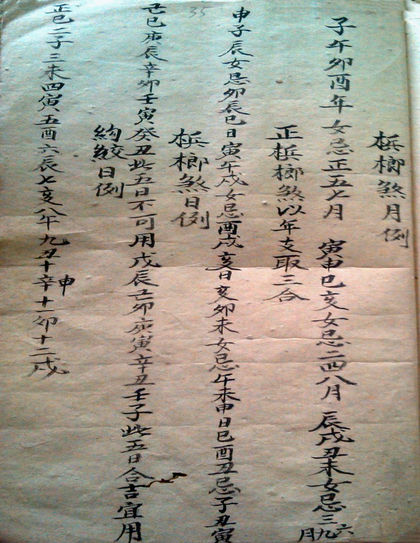 梹榔煞月例
子午卯酉年女忌正五七月 寅申巳亥女忌二四八月 辰戌丑未女忌三六九月
正梹榔煞以年支取三合
申子辰女忌卯辰巳日寅午戌女忌酉戌亥日亥卯未女忌午未申日巳酉丑忌子丑寅
梹榔煞日例
己巳庚辰辛卯壬寅癸丑此五日不可用戊辰己卯庚寅辛丑壬子此五日合吉宜用
絞日例
正巳二子三未四寅五酉六辰七亥八午九丑十辛申十一卯十二戌
35